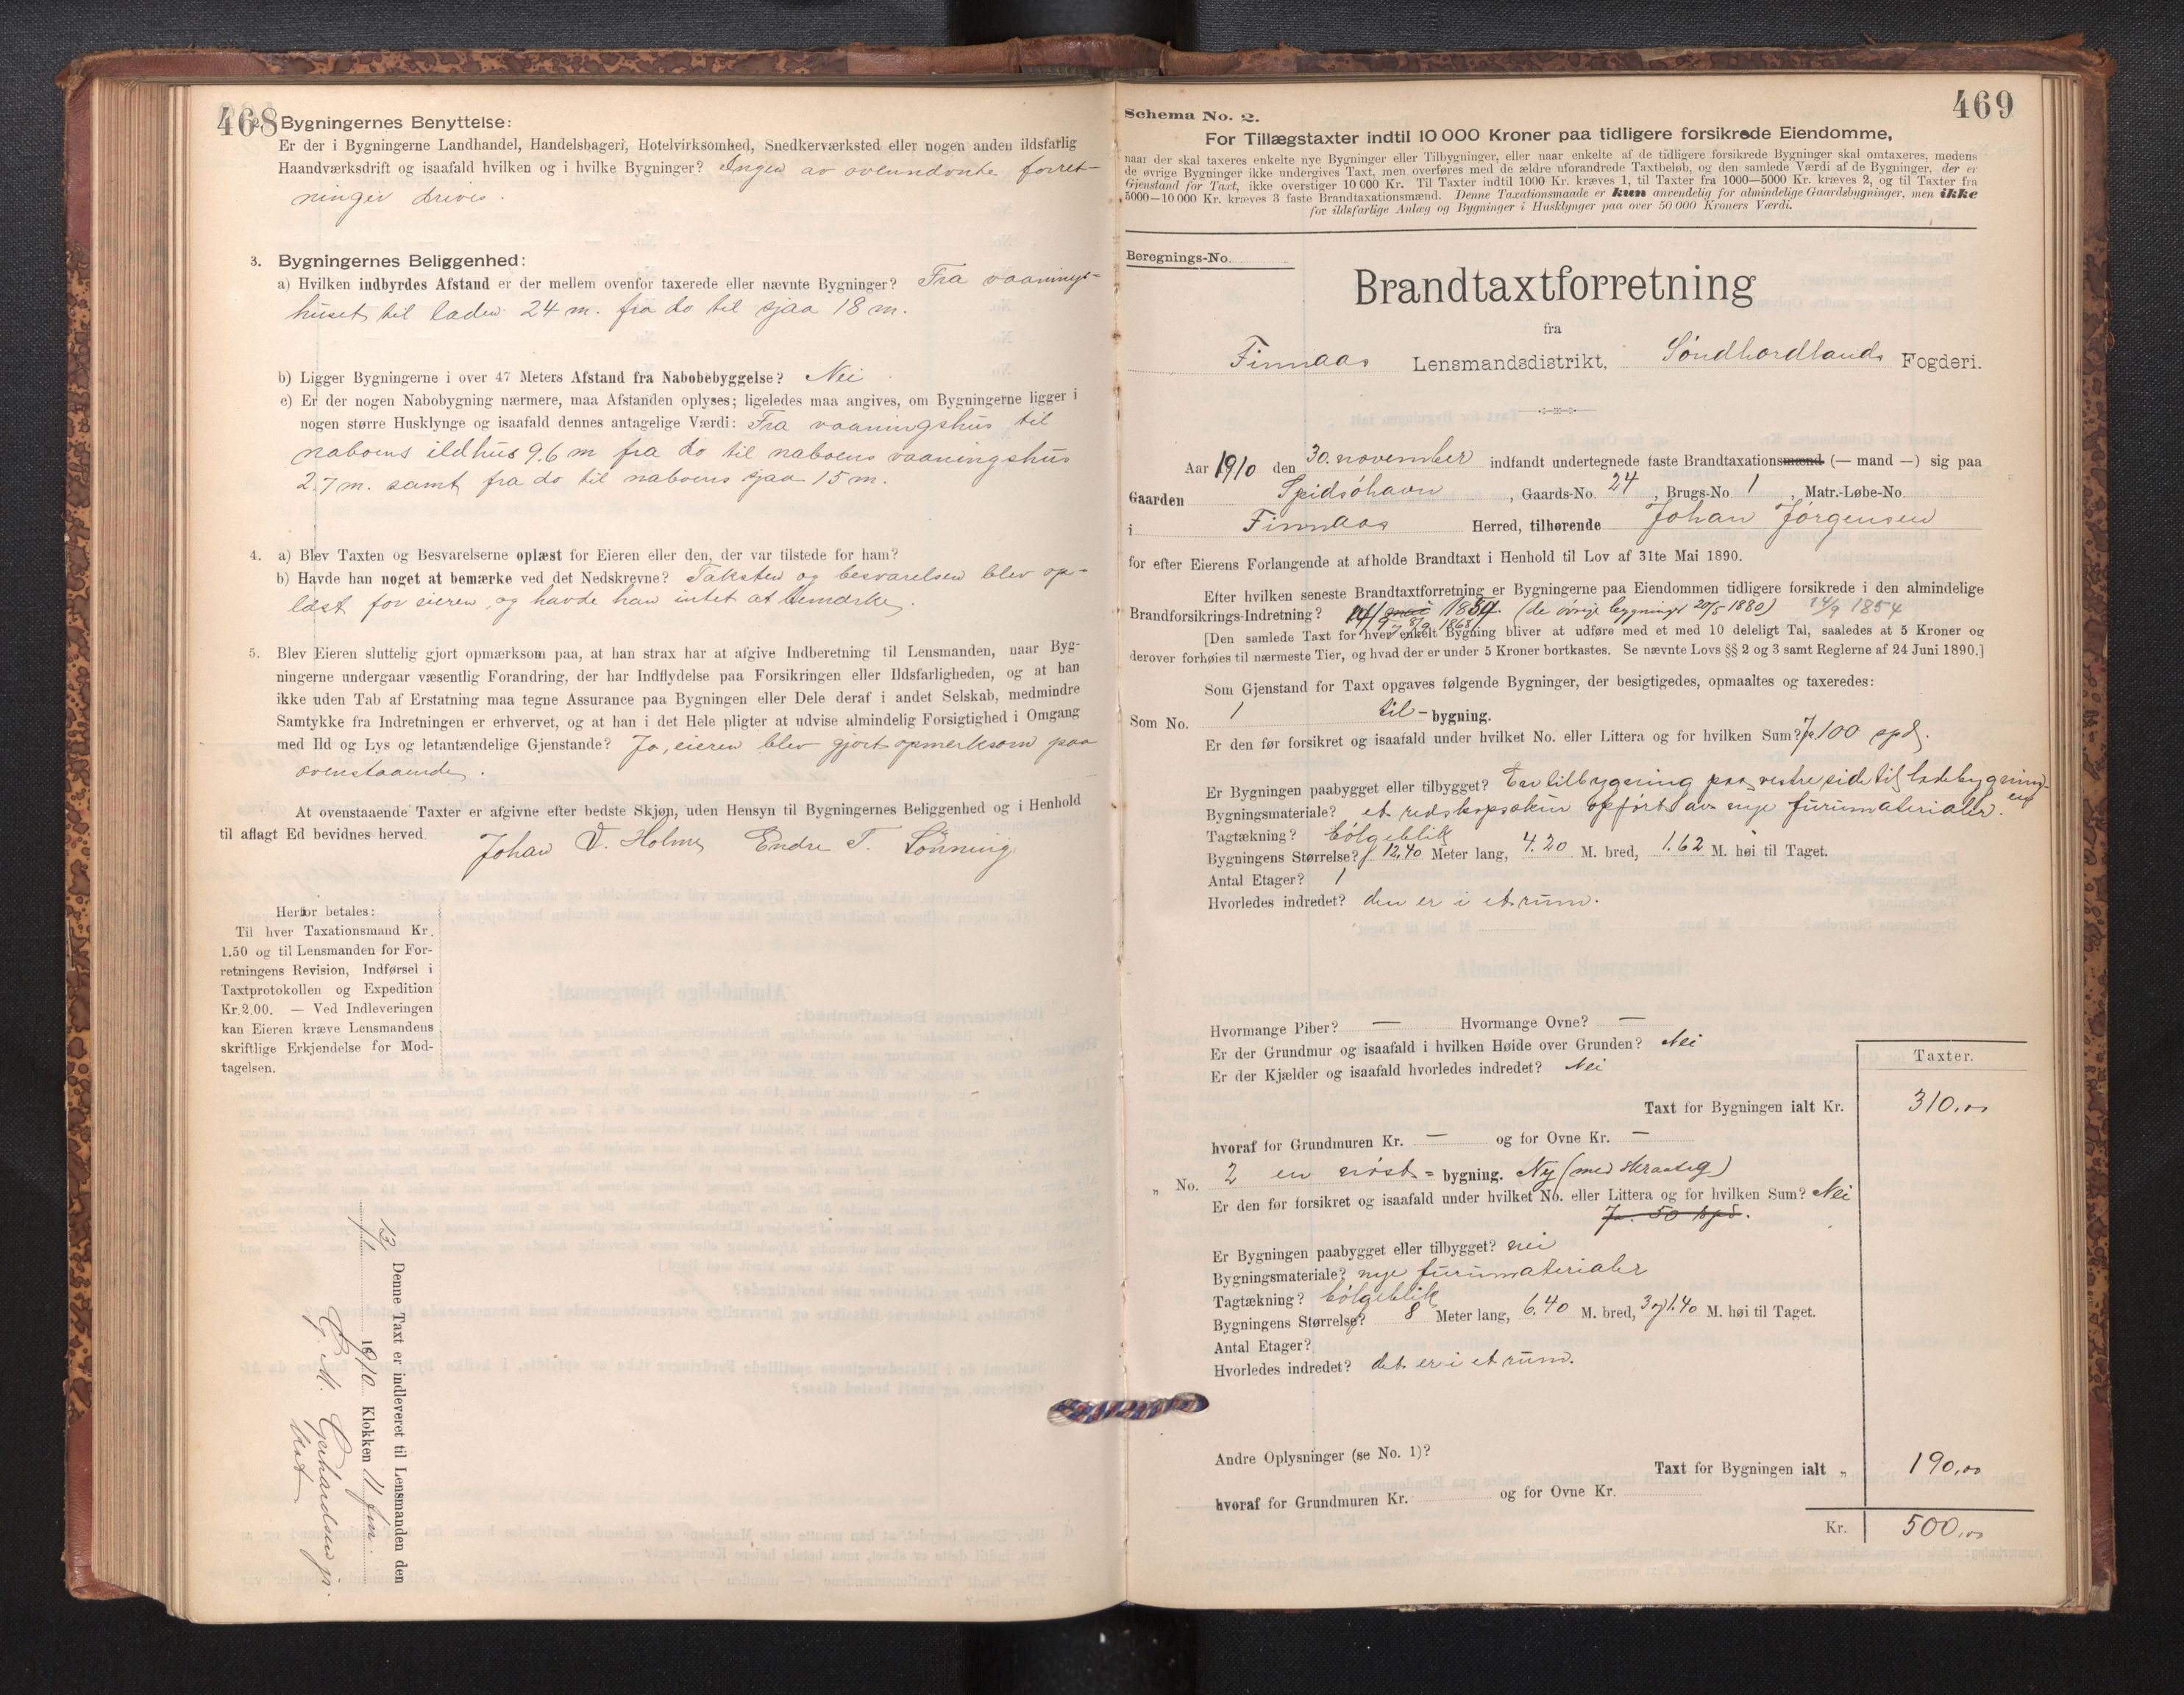 468
2. Bygningernes Benyttelse:
Er der i Bygningerne Landhandel, Handelsbageri, Hotelvirksomhed, Snedkerværksted eller nogen anden ildsfarlig
Haandværksdrift og isaafald hvilken og i hvilke Bygninger? Ingen av ovennevnte forret-
ninger drives.
3. Bygningernes Beliggenhed:
a) Hvilken indbyrdes Afstand er der mellem ovenfor taxerede eller nævnte Bygninger? Fra vaanings-
huset til laden 24 m. fra do til sjaa 18 m.
b) Ligger Bygningerne i over 47 Meters Afstand fra Nabobebyggelse? Nei
c) Er der nogen Nabobygning nærmere, maa Afstanden oplyses; ligeledes maa angives, om Bygningerne ligger i
nogen større Husklynge og isaafald dennes antagelige Værdi: Fra vaaningshus til
naboens ildhus 9.6 m fra do til naboens vaaningshus
2.7 m. samt fra do til naboens sjaa 15 m.
4. a) Blev Taxten og Besvarelserne oplæst for Eieren eller den, der var tilstede for ham?
b) Havde han noget at bemærke ved det Nedskrevne? Taksten og besvarelsen blev op-
læst for eieren, og havde han intet at bemærke.
5. Blev Eieren sluttelig gjort opmærksom paa, at han strax har at afgive Indberetning til Lensmanden, naar Byg-
ningerne undergaar væsentlig Forandring, der har Indflydelse paa Forsikringen eller Ildsfarligheden, og at han
ikke uden Tab af Erstatning maa tegne Assurance paa Bygningen eller Dele deraf i andet Selskab, medmindre
Samtykke fra Indretningen er erhvervet, og at han i det Hele pligter at udvise almindelig Forsigtighed i Omgang
med Ild og Lys og letantændelige Gjenstande? Ja, eieren blev gjort opmerksom paa
ovenstaaende.
At ovenstaaende Taxter er afgivne efter bedste Skjøn, uden Hensyn til Bygningernes Beliggenhed og i Henhold
til aflagt Ed bevidnes herved.
Johan V. Holme Endre T. Lønning
Herfor betales:
Til hver Taxationsmand Kr.
1.50 og til Lensmanden for For-
retningens Revision, Indførsel i
Taxtprotokollen og Expedition
Kr. 2.00. — Ved Indleveringen
kan Eieren kræve Lensmandens
skriftlige Erkjendelse for Mod-
tagelsen.
Denne Taxt er indleveret til Lensmanden den
1910 Klokken 11 fm.
G. M. Gerhardsen jr.
469
Schema No. 2.
For Tillægstaxter indtil 10 000 Kroner paa tidligere forsikrede Eiendomme,
naar der skal taxeres enkelte nye Bygninger eller Tilbygninger, eller naar enkelte af de tidligere forsikrede Bygninger skal omtaxeres, medens
de øvrige Bygninger ikke undergives Taxt, men overføres med de ældre uforandrede Taxtbeløb, og den samlede Værdi af de Bygninger, der er
Gjenstand for Taxt, ikke overstiger 10 000 Kr. Til Taxter indtil 1000 Kr. kræves 1, til Taxter fra 1000—5000 Kr. kræves 2, og til Taxter fra
5000—10 000 Kr. kræves 3 faste Brandtaxationsmænd. Denne Taxationsmaade er kun anvendelig for almindelige Gaardsbygninger, men ikke
for ildsfarlige Anlæg og Bygninger i Husklynger paa over 50 000 Kroners Værdi.
Beregnings-No.
Brandtaxtforretning
fra
Finnaas Lensmandsdistrikt, Søndhordlands Fogderi.
Aar 1910 den 30. november indfandt undertegnede faste Brandtaxationsmænd (— mand —) sig paa
Gaarden Speidsøhavn, Gaards-No. 24, Brugs-No. 1, Matr.-Løbe-No.
i Finnaas Herred, tilhørende Johan Jørgensen
for efter Eierens Forlangende at afholde Brandtaxt i Henhold til Lov af 31te Mai 1890.
Efter hvilken seneste Brandtaxtforretning er Bygningerne paa Eiendommen tidligere forsikrede i den almindelige
Brandforsikrings-Indretning? 14/9 mai 1854. (de øvrige bygninger 20/5 1880) 14/9 1854
8/9 1868
[Den samlede Taxt for hver enkelt Bygning bliver at udføre med et med 10 deleligt Tal, saaledes at 5 Kroner og
derover forhøies til nærmeste Tier, og hvad der er under 5 Kroner bortkastes. Se nævnte Lovs §§ 2 og 3 samt Reglerne af 24 Juni 1890.]
Som Gjenstand for Taxt opgaves følgende Bygninger, der besigtigedes, opmaaltes og taxeredes:
Som No. 1 til-bygning.
Er den før forsikret og isaafald under hvilket No. eller Littera og for hvilken Sum? Ja 100 spd.
Er Bygningen paabygget eller tilbygget? En tilbygning paa vestre side til ladebygning
Bygningsmateriale? et redskapsskur opført av nye furumaterialer.
Tagtækning? bølgeblik
Bygningens Størrelse? 12,40 Meter lang, 4.20 M. bred, 1.62 M. høi til Taget.
Antal Etager? 1
Hvorledes indredet? den er i et rum.
Hvormange Piber? — Hvormange Ovne? —
Er der Grundmur og isaafald i hvilken Høide over Grunden? Nei
Er der Kjælder og isaafald hvorledes indredet? Nei
Taxter.
Taxt for Bygningen ialt Kr. 310,00
hvoraf for Grundmuren Kr. — og for Ovne Kr. —
" No. 2 en nøst-bygning. Ny (med skraatag)
Er den før forsikret og isaafald under hvilket No. eller Littera og for hvilken Sum? Nei
Ja. 50 spd.
Er Bygningen paabygget eller tilbygget? nei
Bygningsmateriale? nye furumaterialer
Tagtækning? bølgeblik
Bygningens Størrelse? 8 Meter lang, 6.40 M. bred, 3 og 1.40 M. høi til Taget.
Antal Etager?
Hvorledes indredet? det er i et rum.
Andre Oplysninger (se No. 1)?
Taxt for Bygningen ialt " 190,00
hvoraf for Grundmuren Kr. og for Ovne Kr.
Kr. 500,00